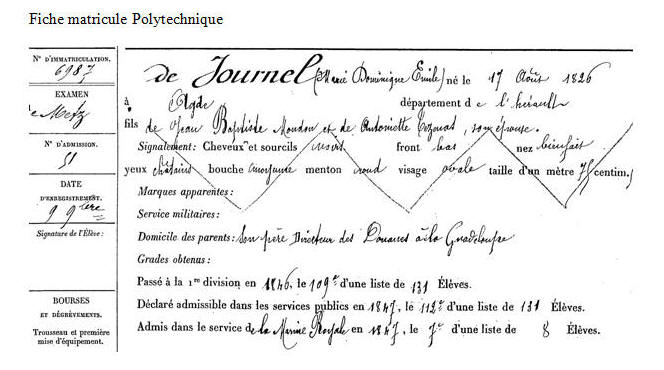 Fiche matricule Polytechnique
N° D'IMMATRICULATION.
6987
EXAMEN
de Metz
N° D'ADMISSION.
51
DATE
D'ENREGISTREMENT.
9 9bre
Signature de l'Élève :
BOURSES
ET DÉGRÈVEMENTS.
Trousseau et première
mise d'équipement.
de Journel (Marie Dominique Emile) né le 17 Août 1826
à Agde département de l'hérault
fils de Jean Baptiste et de Antoinette son épouse.
Signalement : Cheveux et sourcils noirs front bas nez bienfait
yeux châtains bouche moyenne menton rond visage ovale taille d'un mètre 75 centim.
Marques apparentes :
Service militaires :
Domicile des parents : Son père Directeur des Douanes à la Guadeloupe
Grades obtenus :
Passé à la 1re division en 1846, le 109e d'une liste de 131 Élèves.
Déclaré admissible dans les services publics en 1847, le 112e d'une liste de 131 Élèves.
Admis dans le service de la Marine Royale en 1847, le 7e d'une liste de 8 Élèves.